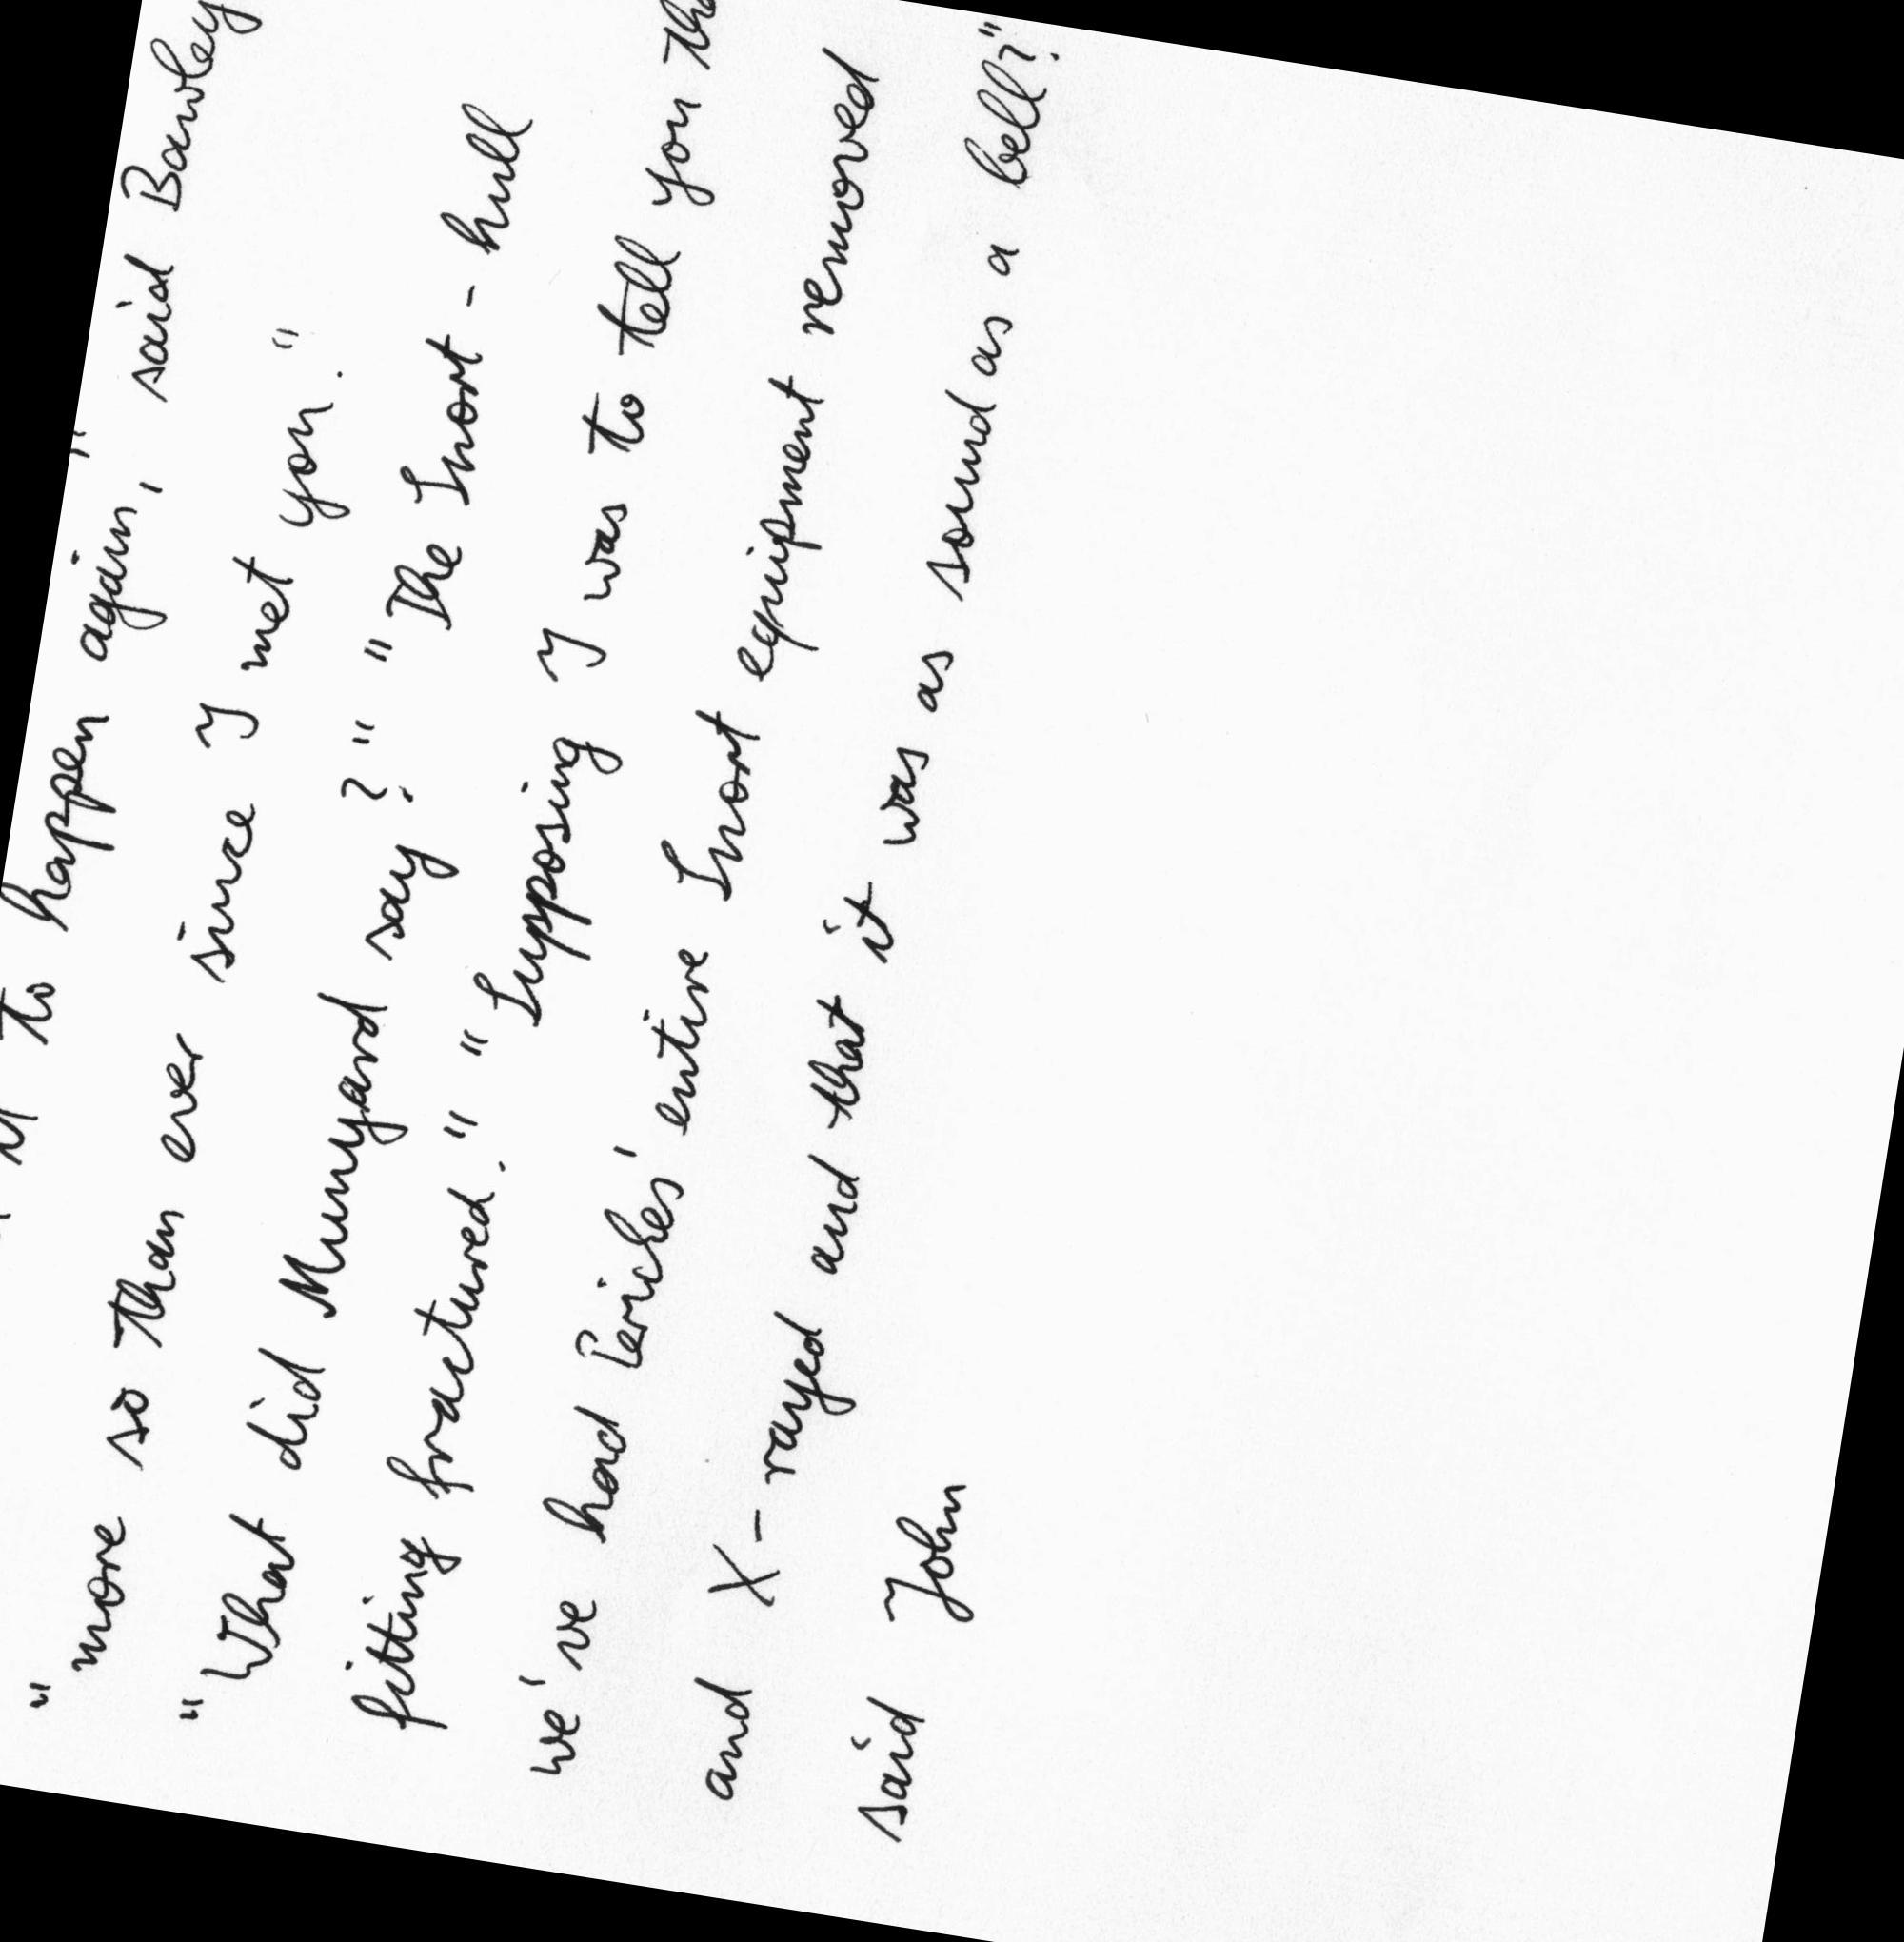 to happen again, " said Bawley
" more so than ever since I met you. "
" What did Munyard say ? " " The Snort - hull
fitting fractured. " " Supposing I was to tell you
we've had Pericles' entire Snort equipment removed
and X - rayed and that it was as sound as a bell? "
said John